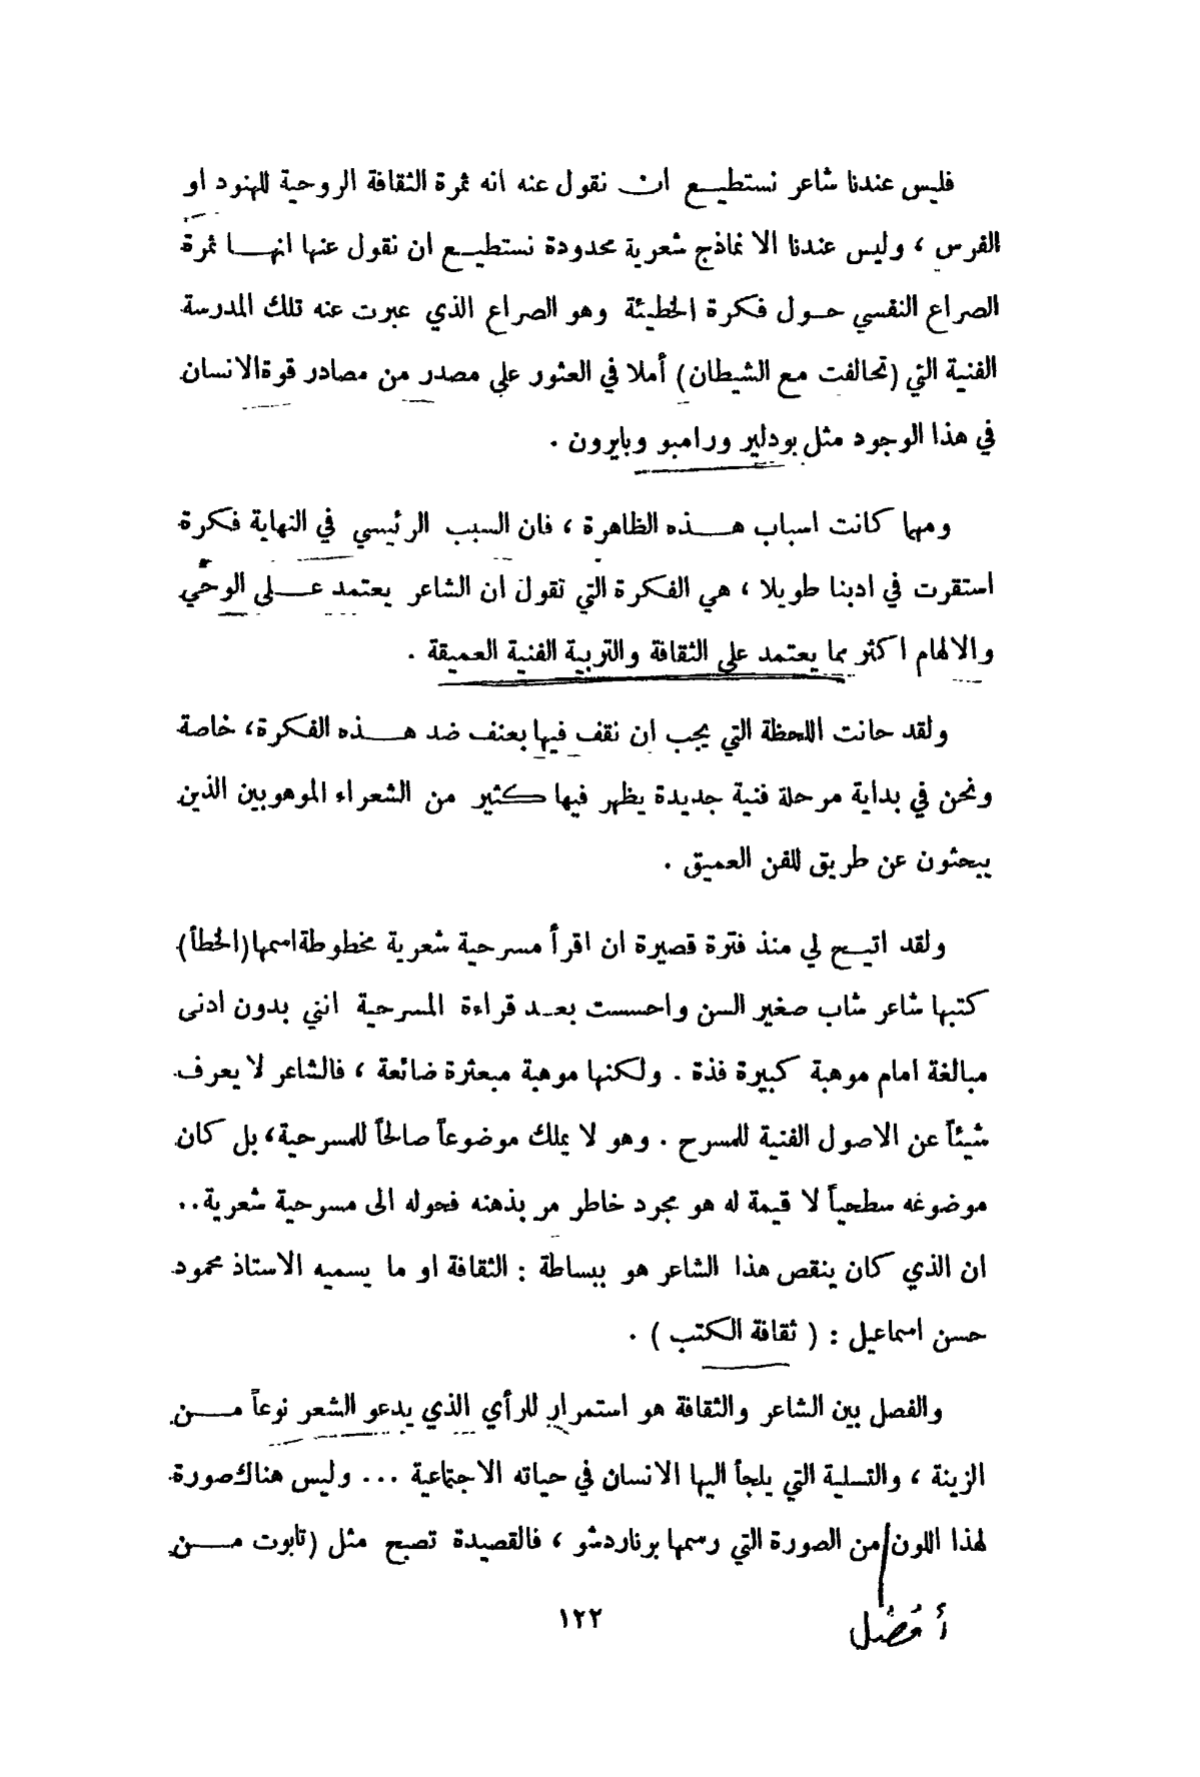 فليس عندنا شاعر نستطيع ان نقول عنه انه ثمرة الثقافة الروحية للهنود او
الفرس ، وليس عندنا الا نماذج شعرية محدودة نستطيع ان نقول عنها انها ثمرة
الصراع النفسي حول فكرة الخطيئة وهو الصراع الذي عبرت عنه تلك المدرسة
الفنية التي (تحالفت مع الشيطان) أملا في العثور على مصدر من مصادر قوة الانسان
في هذا الوجود مثل بودلير ورامبو وبايرون .
ومهما كانت اسباب هذه الظاهرة ، فان السبب الرئيسي في النهاية فكرة
استقرت في ادبنا طويلا ، هي الفكرة التي تقول ان الشاعر يعتمد على الوحي
والالهام اكثر مما يعتمد على الثقافة والتربية الفنية العميقة .
ولقد حانت اللحظة التي يجب ان نقف فيها بعنف ضد هذه الفكرة، خاصة
ونحن في بداية مرحلة فنية جديدة يظهر فيها كثير من الشعراء الموهوبين الذين
يبحثون عن طريق للفن العميق .
ولقد اتيح لي منذ فترة قصيرة ان اقرأ مسرحية شعرية مخطوطة اسمها (الخطأ)
كتبها شاعر شاب صغير السن واحسست بعد قراءة المسرحية انني بدون ادنى
مبالغة امام موهبة كبيرة فذة . ولكنها موهبة مبعثرة ضائعة ، فالشاعر لا يعرف
شيئاً عن الاصول الفنية للمسرح . وهو لا يملك موضوعاً صالحاً للمسرحية، بل كان
موضوغه سطحياً لا قيمة له هو مجرد خاطر مر بذهنه فحوله الى مسرحية شعرية..
ان الذي كان ينقص هذا الشاعر هو ببساطة : الثقافة او ما يسميه الاستاذ محمود
حسن اسماعيل : ( ثقافة الكتب ) .
والفصل بين الشاعر والثقافة هو استمرار للرأي الذي يدعو الشعر نوعاً من
الزينة ، والتسلية التي يلجأ اليها الانسان في حياته الاجتماعية ... وليس هناك صورة
لهذا اللون من الصورة التي رسمها برناردشو ، فالقصيدة تصبح مثل (تابوت من
أفضل
١٢٢